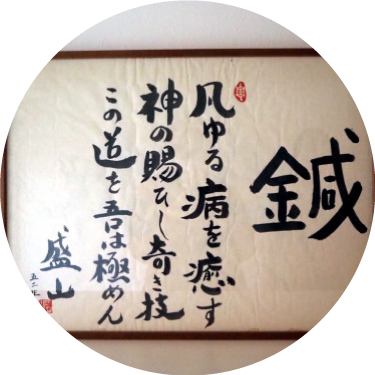 鍼
凡ゆる病を癒す
神の賜ひし奇き技
この道を吾は極めん
盛山